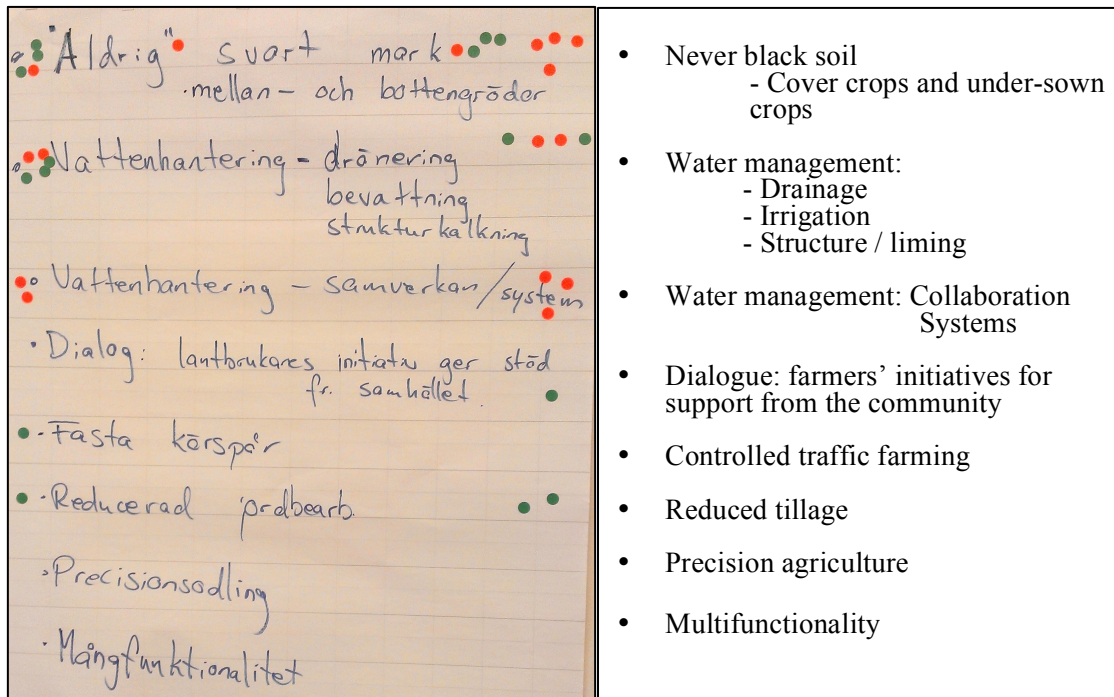 "Aldrig" svart mark
· mellan- och bottengrödor
Vattenhantering - dränering
bevattning
strukturkalkning
· Vattenhantering - samverkan/system
· Dialog: lantbrukares initiativ ger stöd
fr. samhället.
· Fasta körspår
· Reducerad jordbearb.
· Precisionsodling
· Mångfunktionalitet
• Never black soil
- Cover crops and under-sown
crops
• Water management:
- Drainage
- Irrigation
- Structure / liming
• Water management: Collaboration
Systems
• Dialogue: farmers' initiatives for
support from the community
• Controlled traffic farming
• Reduced tillage
• Precision agriculture
• Multifunctionality